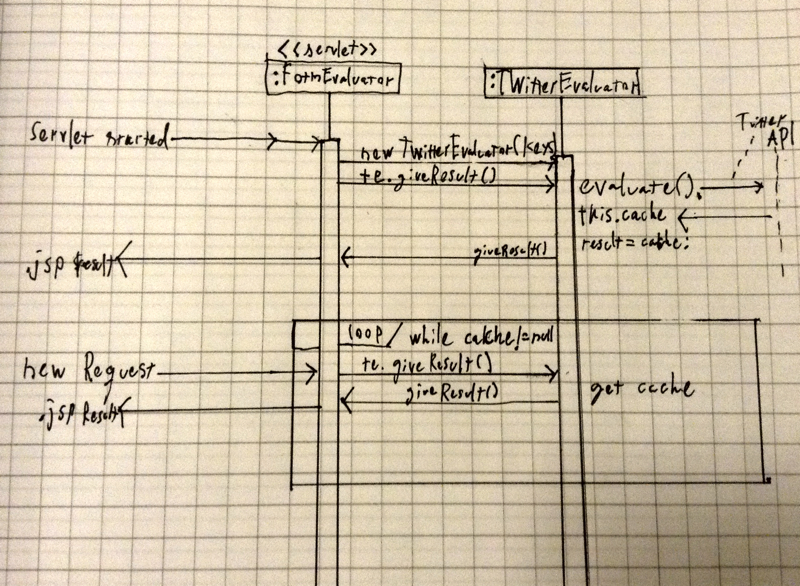 <<servlet>>
:FormEvaluator
:TwitterEvaluator
Twitter
API
Servlet started
new TwitterEvaluator(keys)
te.giveResult()
evaluate().
this.cache
result=cache;
giveResult()
.jsp Result
loop/ while cache!=null
new Request
te. giveResult()
giveResult()
get cache
.jsp Result